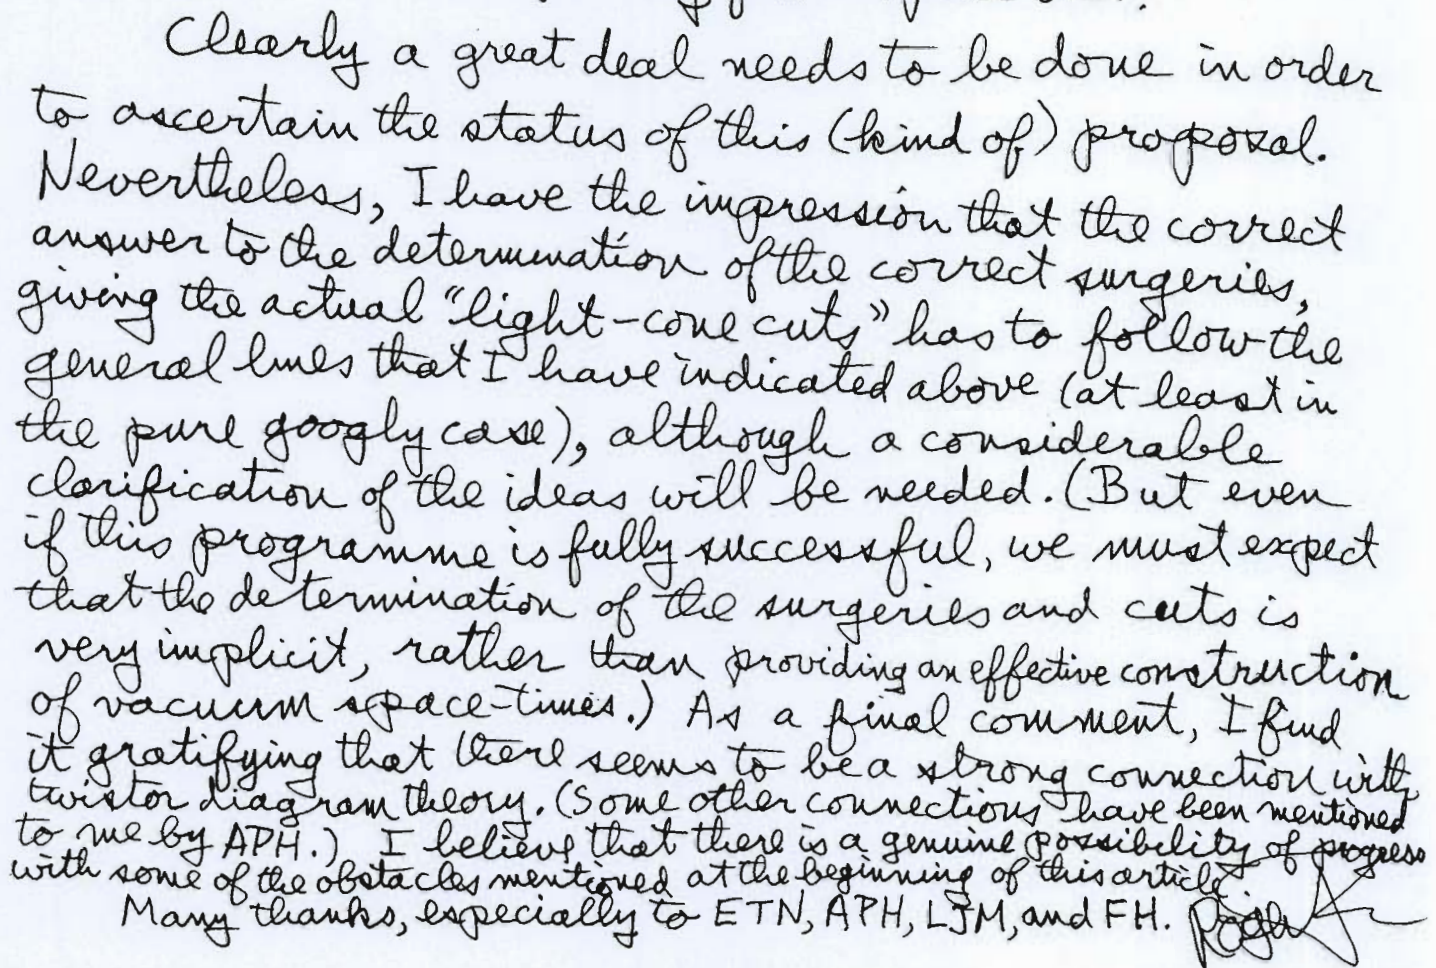 Clearly a great deal needs to be done in order
to ascertain the status of this (kind of) proposal.
Nevertheless, I have the impression that the correct
answer to the determination of the correct surgeries,
giving the actual "light-cone cuts" has to follow the
general lines that I have indicated above (at least in
the pure googly case), although a considerable
clarification of the ideas will be needed. (But even
if this programme is fully successful, we must expect
that the determination of the surgeries and cuts is
very implicit, rather than providing an effective construction
of vacuum space-times.) As a final comment, I find
it gratifying that there seems to be a strong connection with
twistor diagram theory. (Some other connections have been mentioned
to me by APH.) I believe that there is a genuine possibility of progress
with some of the obstacles mentioned at the beginning of this article.
Many thanks, especially to ETN, APH, LJM, and FH. Roger